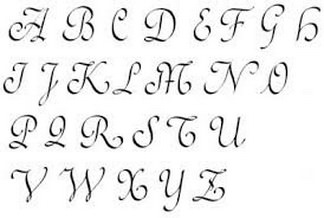 A B C D E F G H
I J K L M N O
P Q R S T U
V W X Y Z